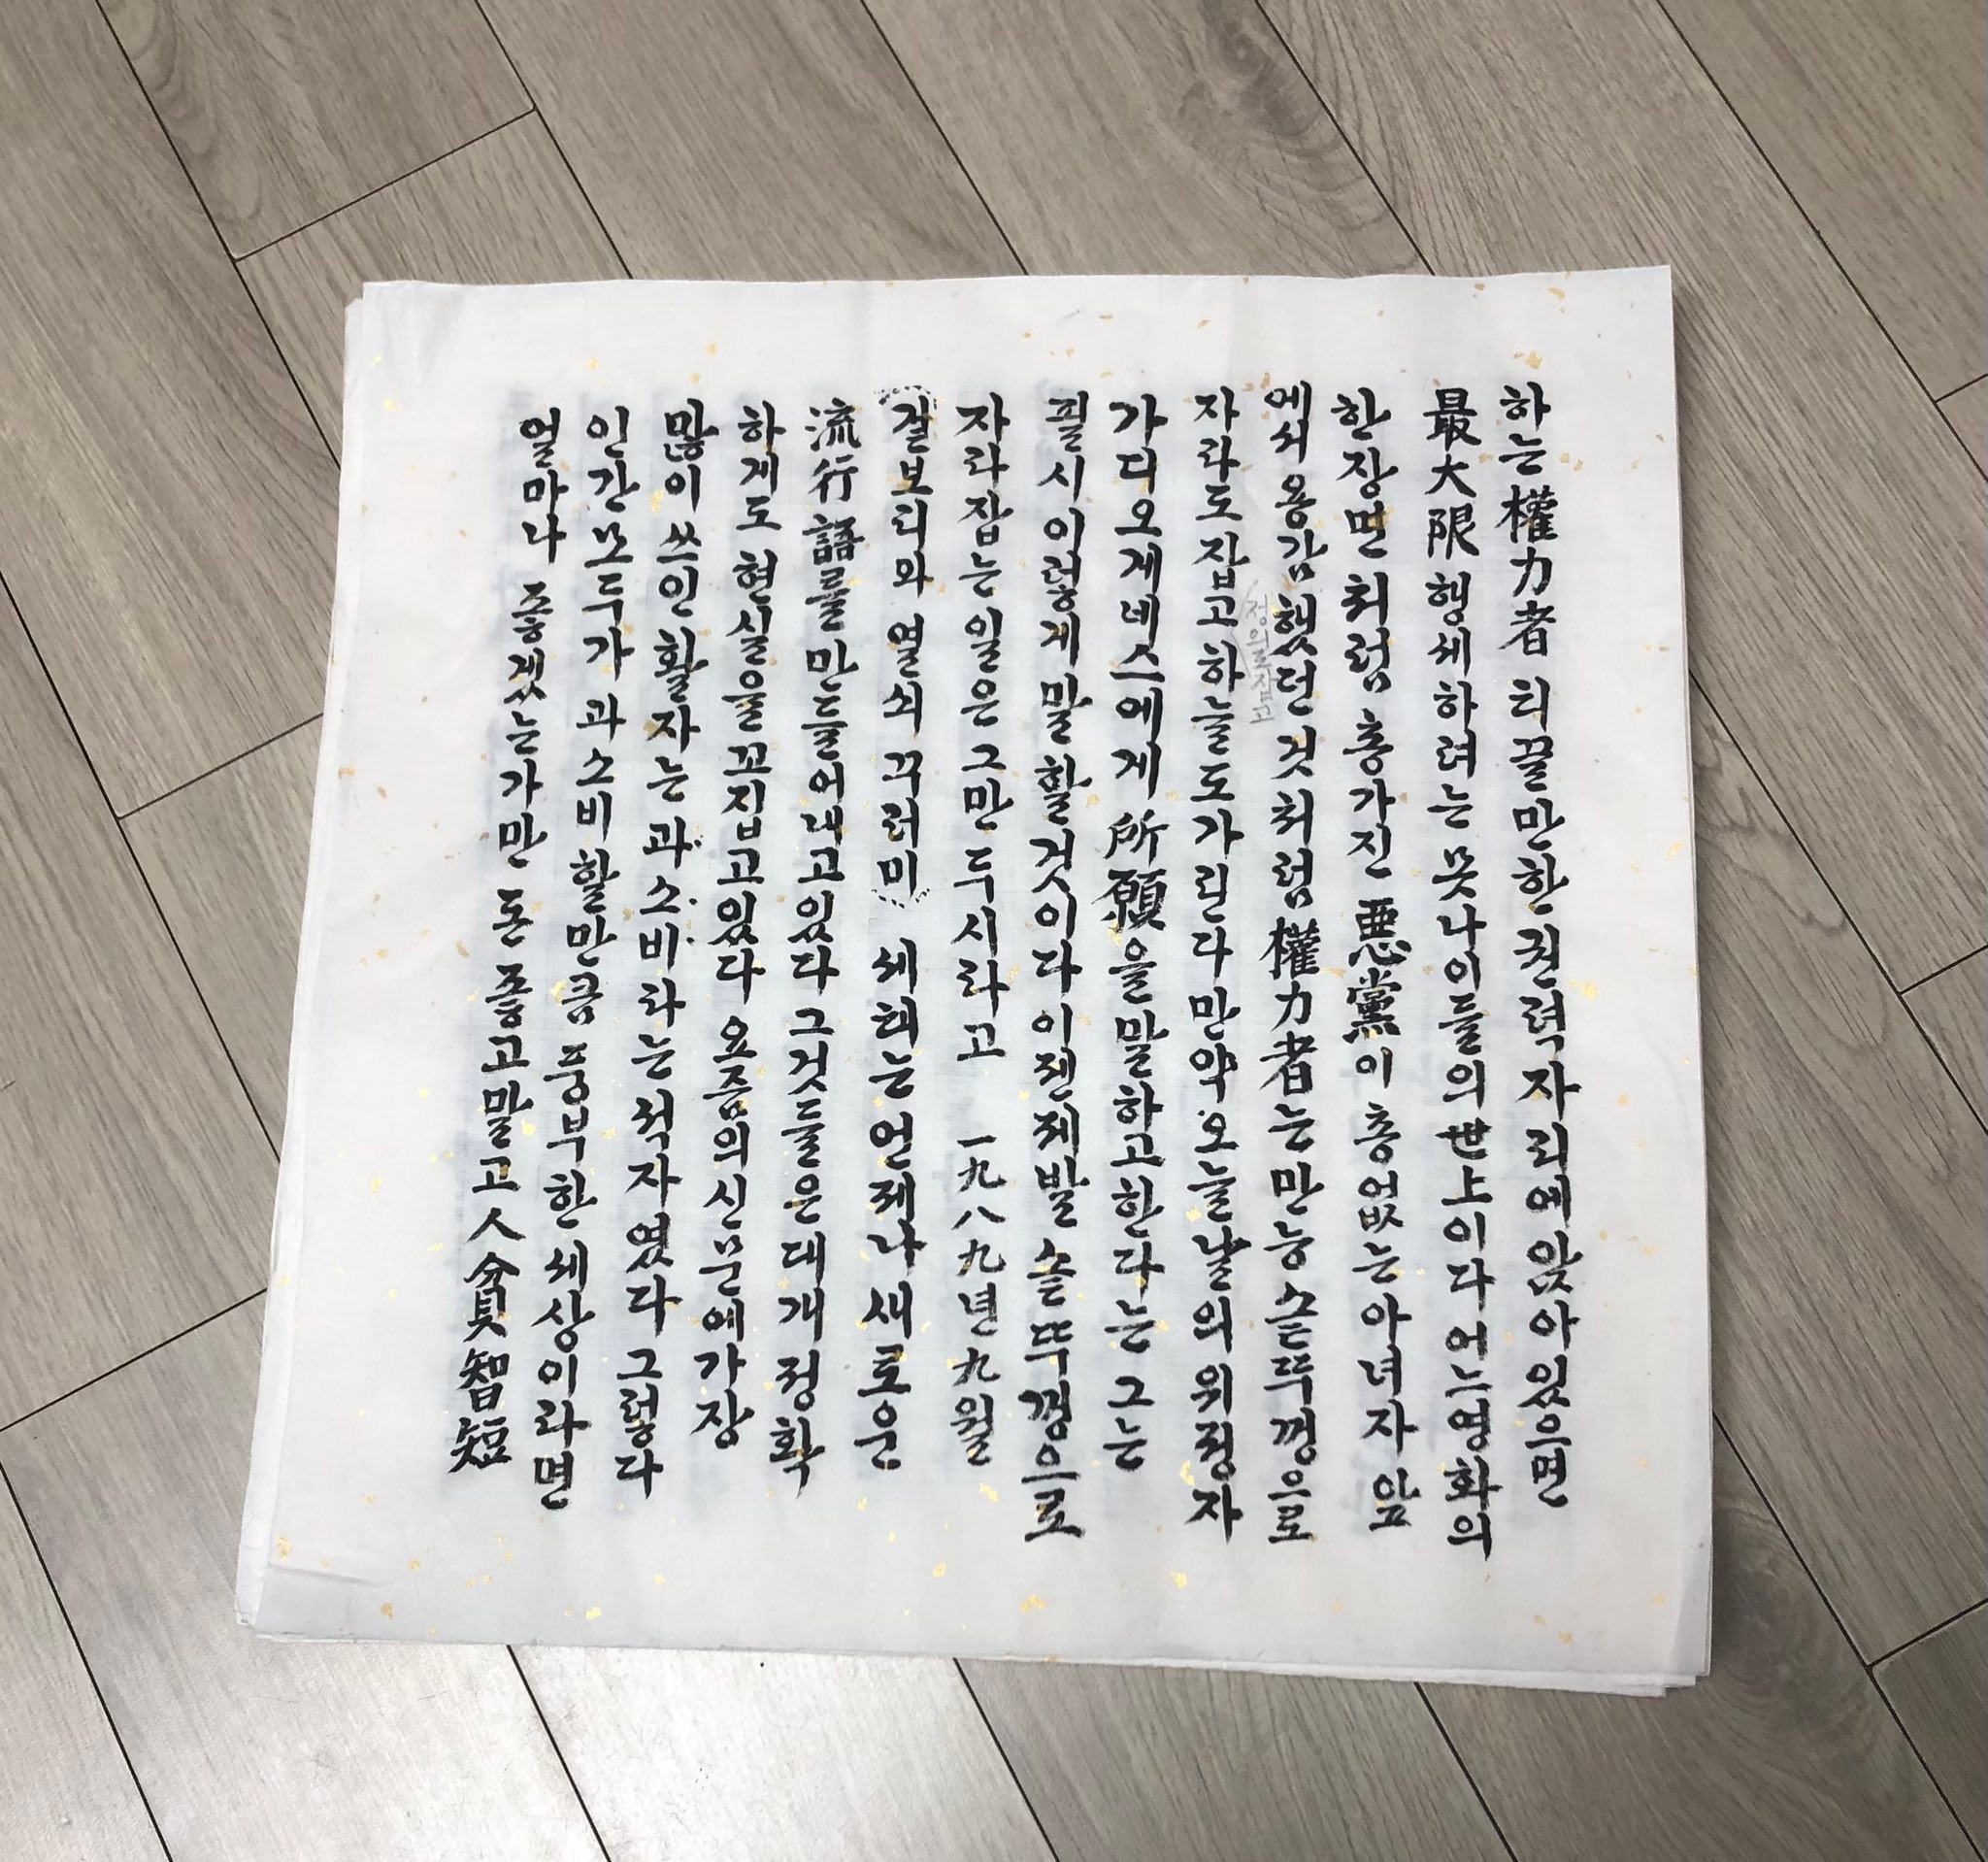 하는 權力者 티끌만한 권력자리에 앉아 있으면
最大限 행세하려는 못나이들의 世上이다 어느 영화의
한장면처럼 총가진 惡黨이 총없는 아녀자 앞
에서 용감했던 것처럼 權力者는 만능 솥뚜껑으로
정의로 잡고
자라도 잡고 하늘도 가린다 만약 오늘날의 위정자
가 디오게네스에게 所願을 말하고 한다는 그는
필시 이렇게 말할 것이다 이젠 제발 솥뚜껑으로
자라잡는 일은 그만 두시라고 一九八九년 九월
걸보리와 열쇠꾸러미 세희는 언제나 새로운
流行語를 만들어내고 있다 그것들은 대개 정확
하게도 현실을 꼬집고 있다 요즘의 신문에 가장
많이 쓰인 활자는 과소비라는 석자였다 그렇다
인간 모두가 과소비할 만큼 풍부한 세상이라면
얼마나 좋겠는가만 돈 좋고 말고 人貧智短